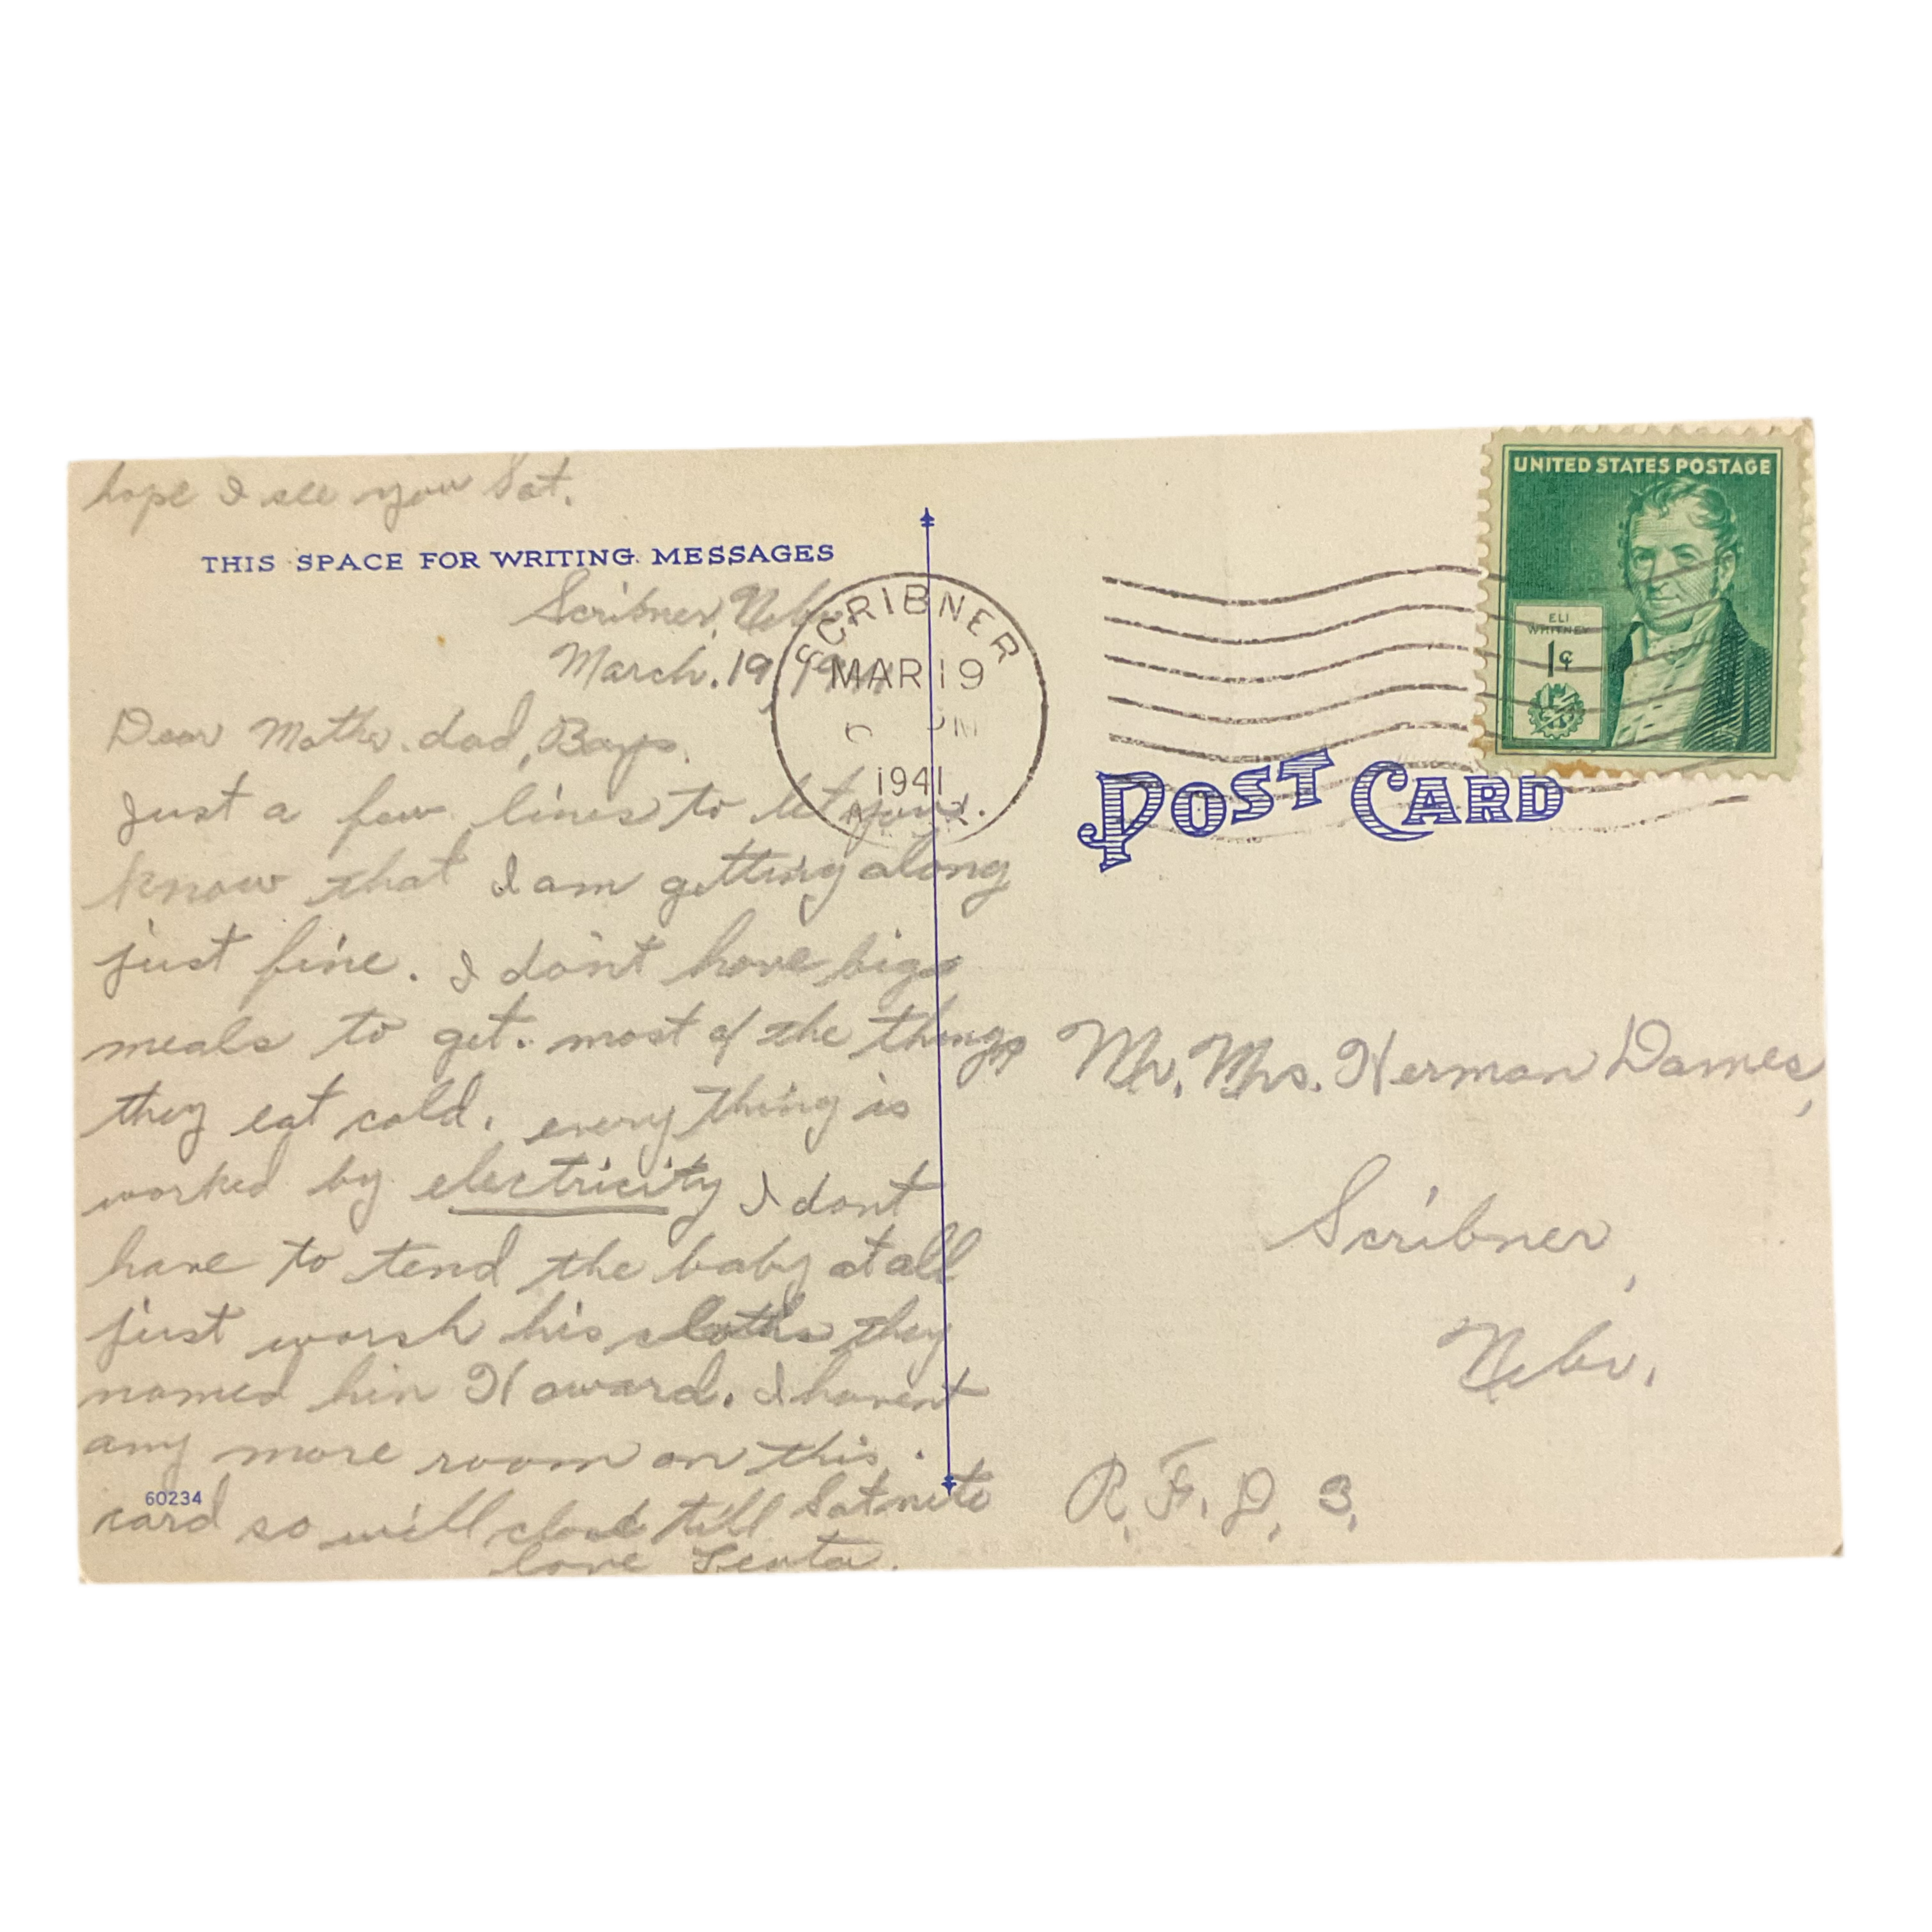 hope I see you Sat.
THIS SPACE FOR WRITING MESSAGES
Scribner, Nebr.
March. 19, 1941
Dear Mother. dad, Boys.
Just a few lines to let you.
know that I am getting along
just fine. I don't have big
meals to get. most of the things
they eat cold. every thing is
worked by electricity I dont
have to tend the baby at all
just worsh his cloths they
named him Howard. I havent
any more room on this.
card so will close till Sat nite
love
60234
SCRIBNER
MAR 19
PM
1941
UNITED STATES POSTAGE
ELI
WHITNEY
1¢
POST CARD
Mr. Mrs. Herman Dames,
Scribner,
Nebr.
R. F. D. 3.